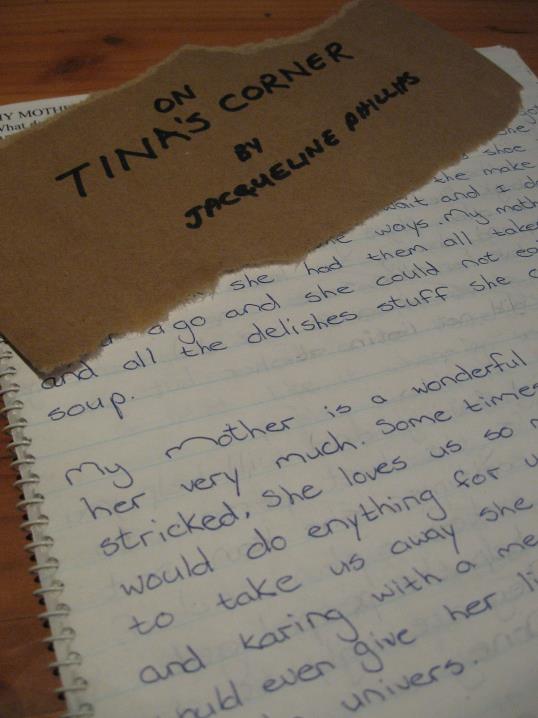 ON
TINA'S CORNER
BY
JACQUELINE PHILLIPS
MY MOTH
What do
shoe
the make
wait and I do
ways. My moth
she had them all taken
ago and she could not ea
and all the delishes stuff she c
soup.
My mother is a wonderful
her very much. Some times
stricked, she loves us so m
would do enything for u
to take us away she
and karing with a me
ould even give her li
univers.